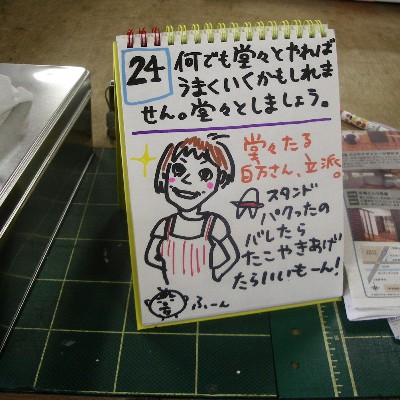 24
何でも堂々とやれば
うまくいくかもしれま
せん。堂々としましょう。
堂々たる
百万さん、立派。
スタンド
パクったの
バレたら
たこやきあげ
たらいいもーん!
ふーん